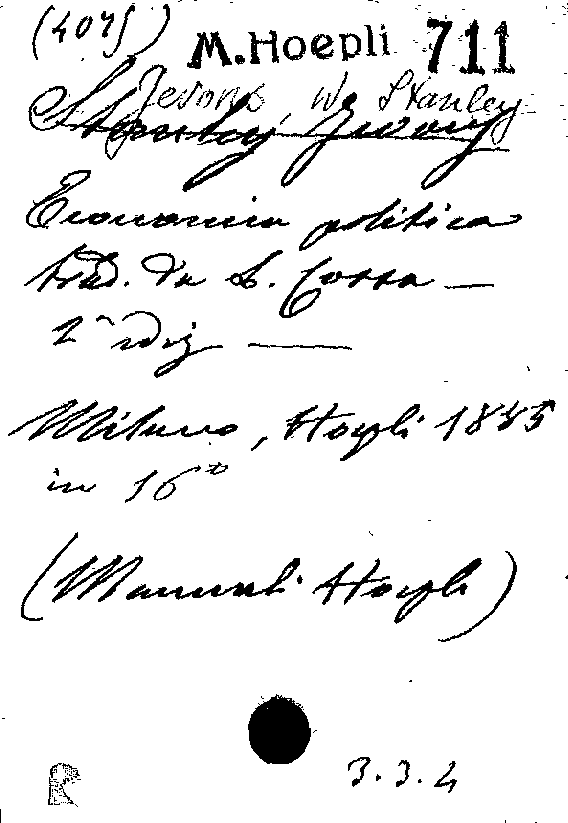 (4075)
M. Hoepli 711
Jevons, W. Stanley
Stanley Jevons
Economia politica
trad. da L. Cossa —
2ª ediz —
Milano, Hoepli 1885
in 16°
(Manuali Hoepli)
R
3.3.4